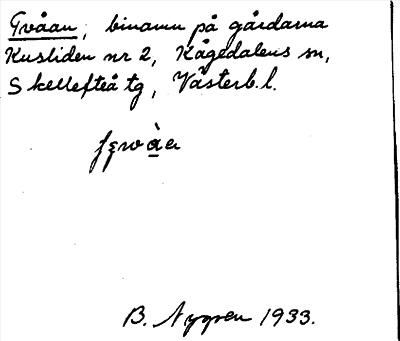 Gvåan, binamn på gårdarna
Kusliden nr 2, Kågedalens sn,
Skellefteå tg, Västerb. l.
B. Nygren 1933.